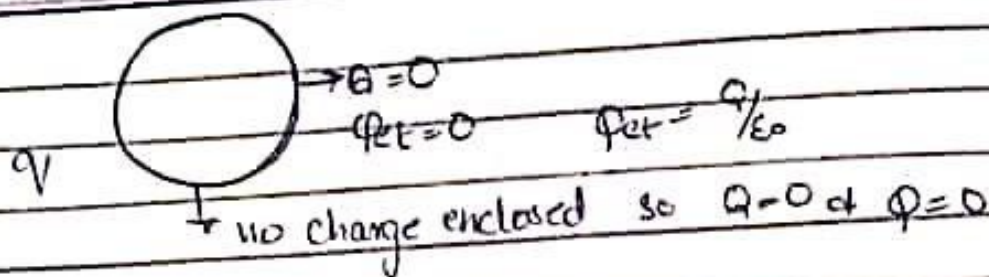 → Q = 0
φet = 0 φet = Q/ε₀
q
→ no charge enclosed so Q = 0 & φ = 0